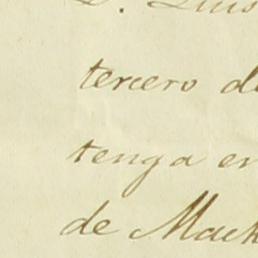 D. Luis
tercero d
tenga en
de Mack